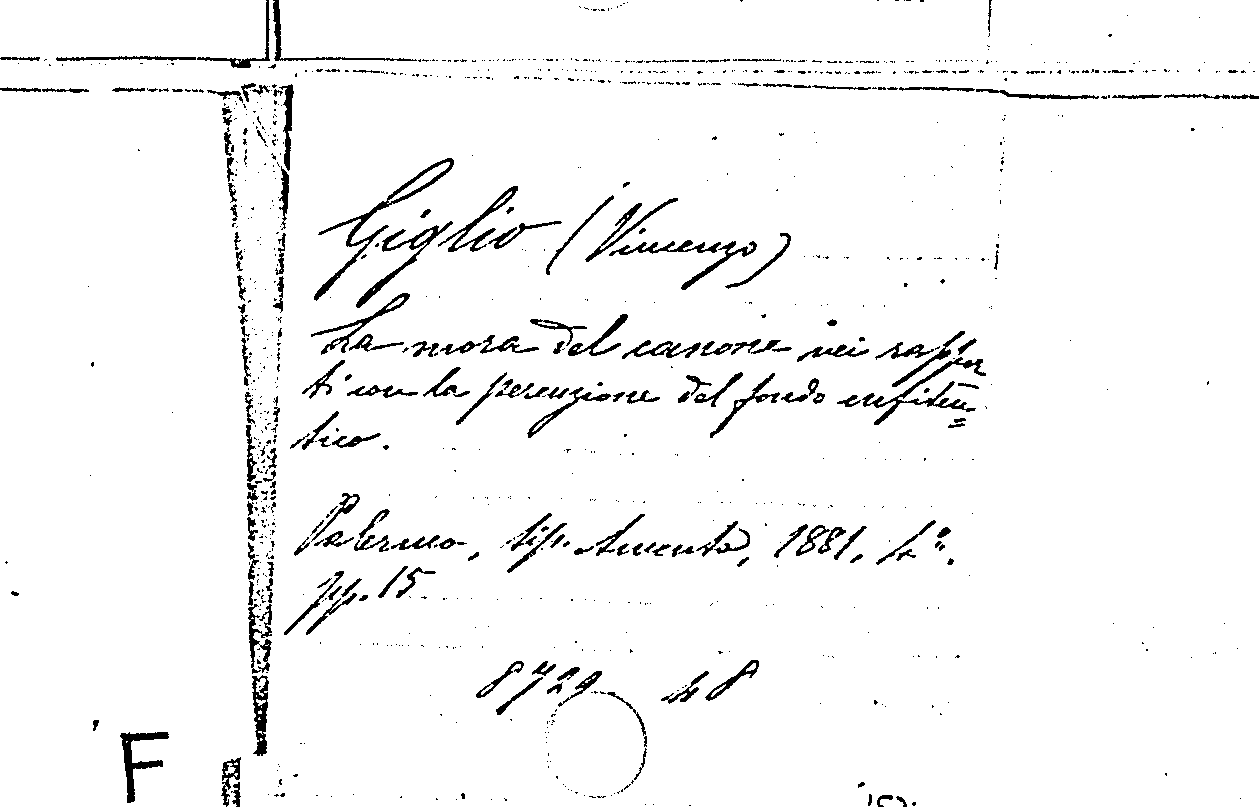 Giglio (Vincenzo)
La mora del canone nei rappor
ti con la perenzione del fondo enfiteu=
tico.
Palermo, tip. Amenta, 1881, 4°.
pp. 15
8729 48
F